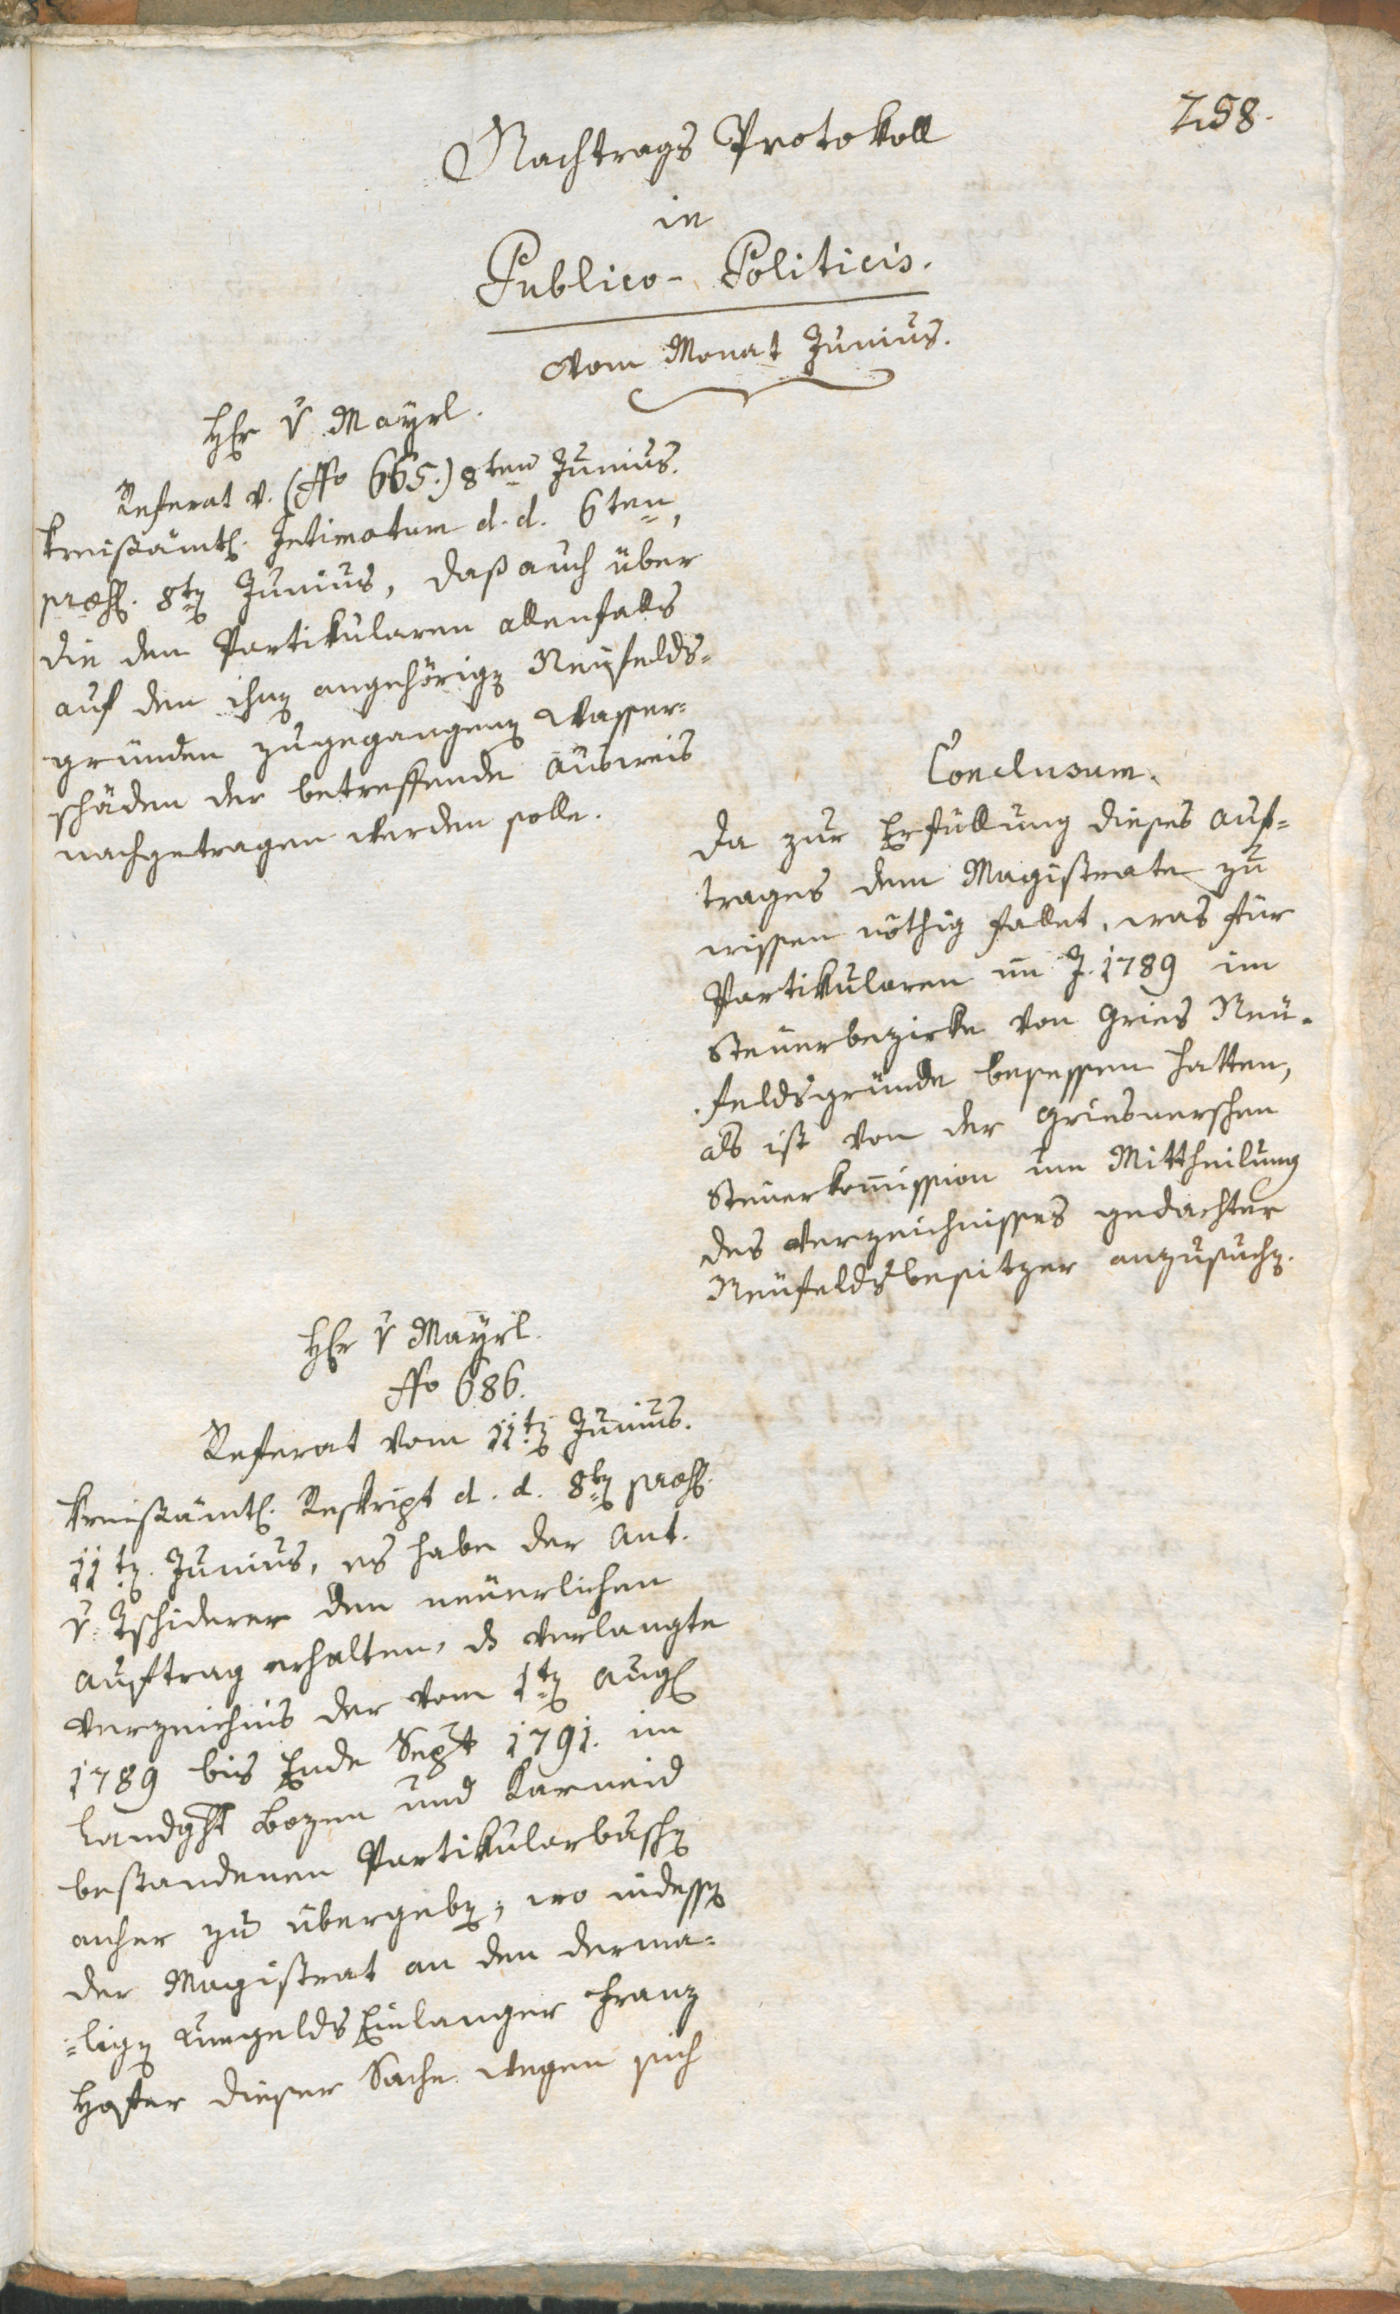 258.
Nachtrags Protokoll
in
Publico-Politicis.
vom Monat Junius.
H&#x300;r v. Mayrl.
Referat v. (No 665.) 8ten Junius.
kreißämtl. Intimatum d. d. 6ten,
præs. 8tn Junius, daß auch über
die den Partikularen allenfalls
auf den ihnen angehörign Neufelds-
gründen zugegangenen Wasser-
schäden der betreffende Ausweis
nachgetragen werden solle.
Conclusum.
Da zur Erfüllung dieses Auf-
trages dem Magistrate zu
wissen nöthig fallet, was für
Partikularen im J. 1789 im
Steuerbezirke von Gries Neu-
feldsgründe besessen hatten,
als ist von der Griesnerschen
Steuerkommission um Mittheilung
des Verzeichnisses gedachter
Neufeldsbesitzer anzusuchn.
Hr v Mayrl.
No 686.
Referat vom 11tn Junius.
kreißämtl. Reskript d. d. 8tn præs.
11tn. Junius, es habe der Ant.
v. Tschiderer den neuerlichen
Auftrag erhalten, ds verlangte
Verzeichnis der vom 1tn Aug.
1789 bis Ende Sept 1791. im
Landght Bozen und Karneid
bestandenen Partikularbuschn
anher zu übergebn; wo indessn
der Magistrat an den derma-
-lign Umgelds Einlanger Franz
Hofer dieser Sache wegen sich